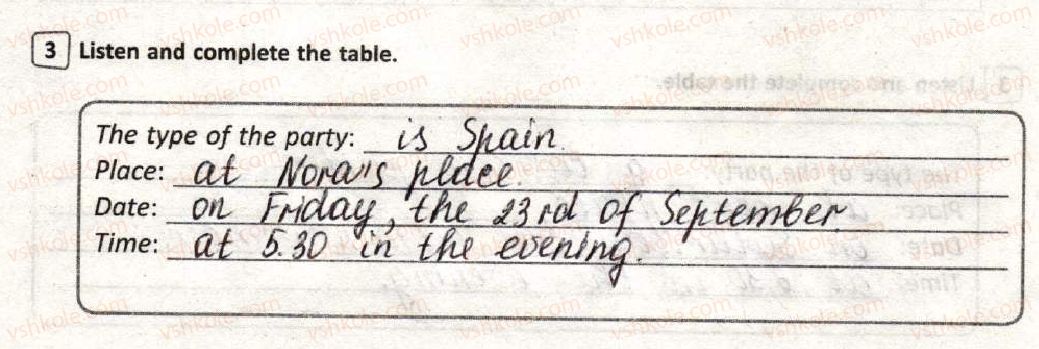 3 Listen and complete the table.
The type of the party: is Spain.
Place: at Nora's place.
Date: on Friday, the 23rd of September.
Time: at 5.30 in the evening.